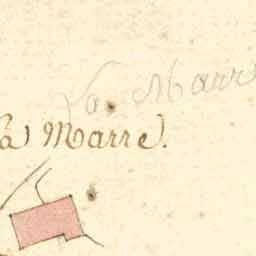 La Marre
La Marre.